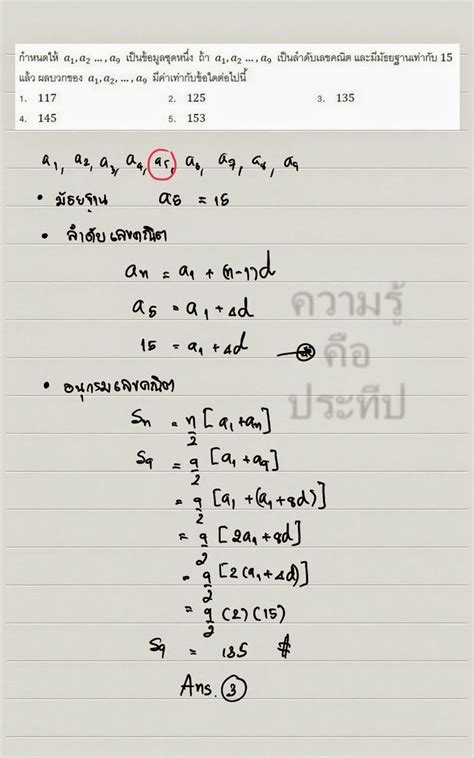 กำหนดให้ a₁, a₂ ..., a₉ เป็นข้อมูลชุดหนึ่ง ถ้า a₁, a₂ ..., a₉ เป็นลำดับเลขคณิต และมีมัธยฐานเท่ากับ 15
แล้ว ผลบวกของ a₁, a₂, ..., a₉ มีค่าเท่ากับข้อใดต่อไปนี้
1. 117 2. 125 3. 135
4. 145 5. 153
a₁, a₂, a₃, a₄, a₅, a₆, a₇, a₈, a₉
• มัธยฐาน a₅ = 15
• ลำดับเลขคณิต
aₙ = a₁ + (n-1)d
a₅ = a₁ + 4d
15 = a₁ + 4d
ความรู้
คือ
ประทีป
• อนุกรมเลขคณิต
Sₙ = n/2 [a₁+aₙ]
S₉ = 9/2 [a₁+a₉]
= 9/2 [a₁+(a₁+8d)]
= 9/2 [2a₁+8d]
= 9/2 [2(a₁+4d)]
= 9/2 (2)(15)
S₉ = 135 #
Ans. 3